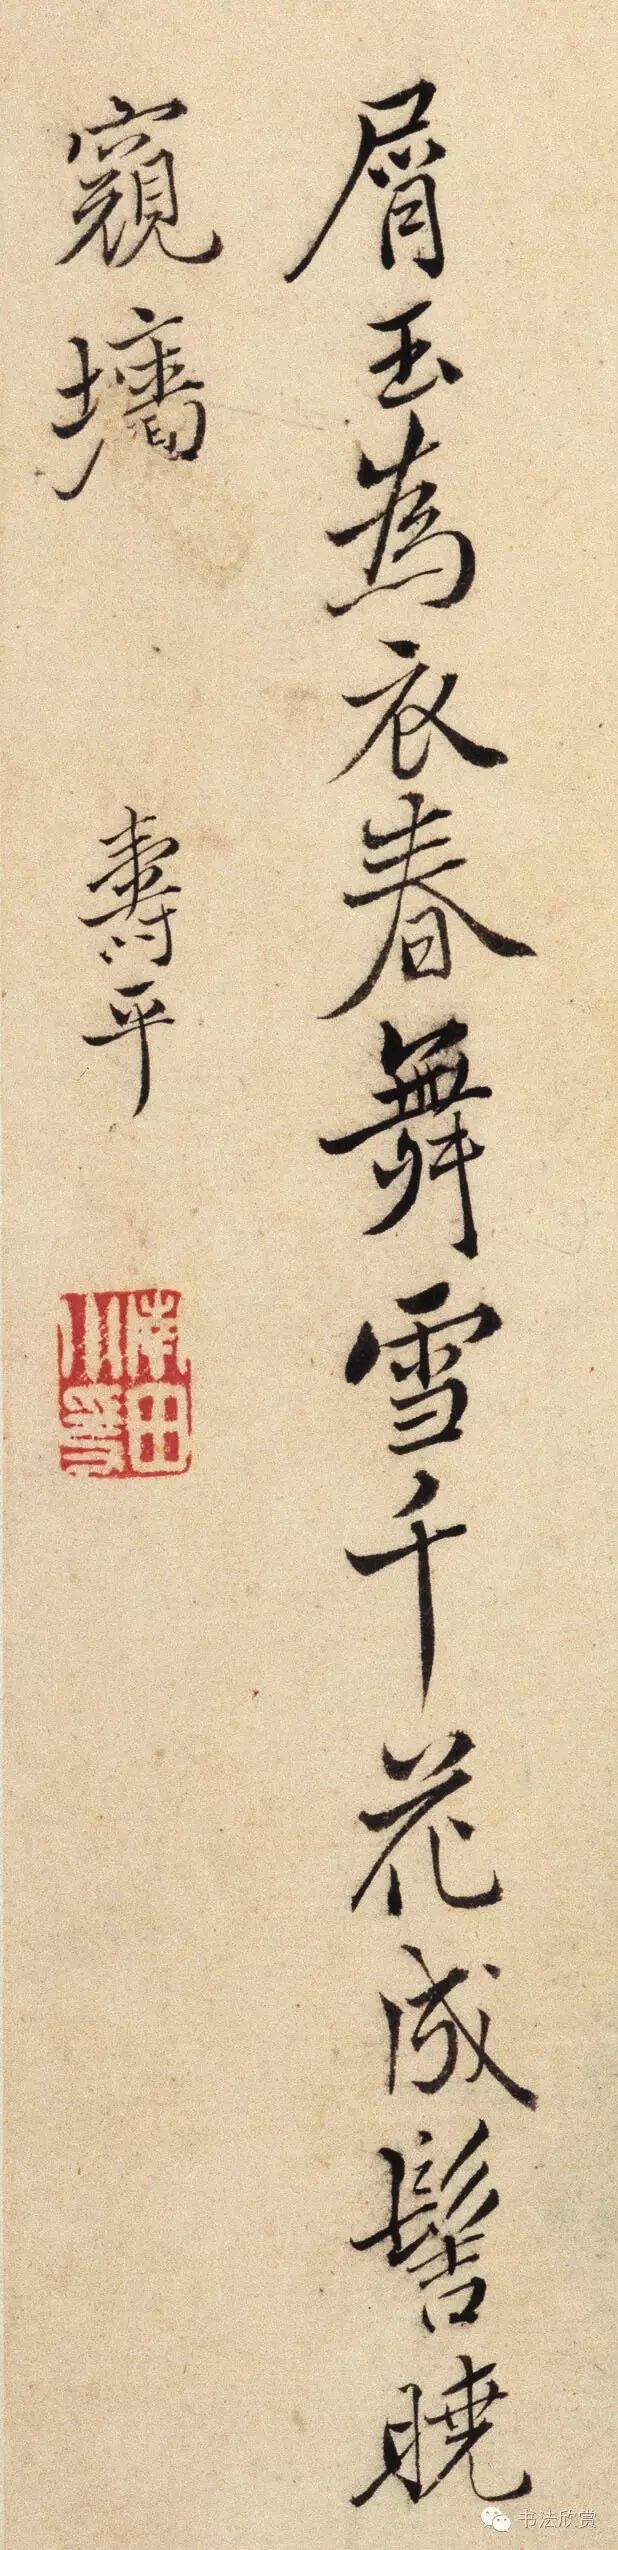 屑玉為衣春舞雪千花成髻曉
窺墻
壽平
书法欣赏